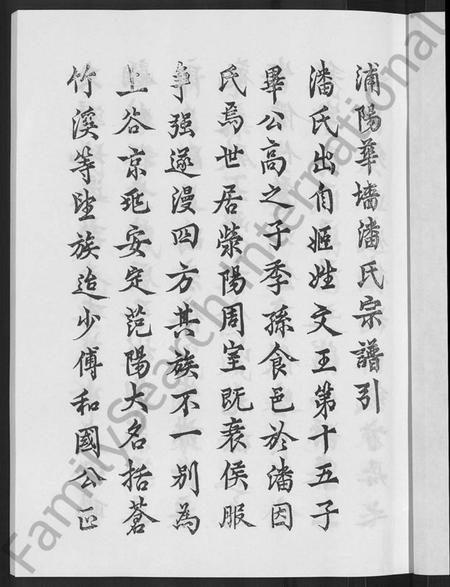 浦陽華墻潘氏宗譜引
潘氏出自姬姓文王第十五子
畢公高之子季孫食邑於潘因
氏焉世居滎陽周室既衰侯服
爭强遂漫四方其族不一別為
上谷京兆安定范陽大名括蒼
竹溪等望族迨少傅和國公正
FamilySearch International